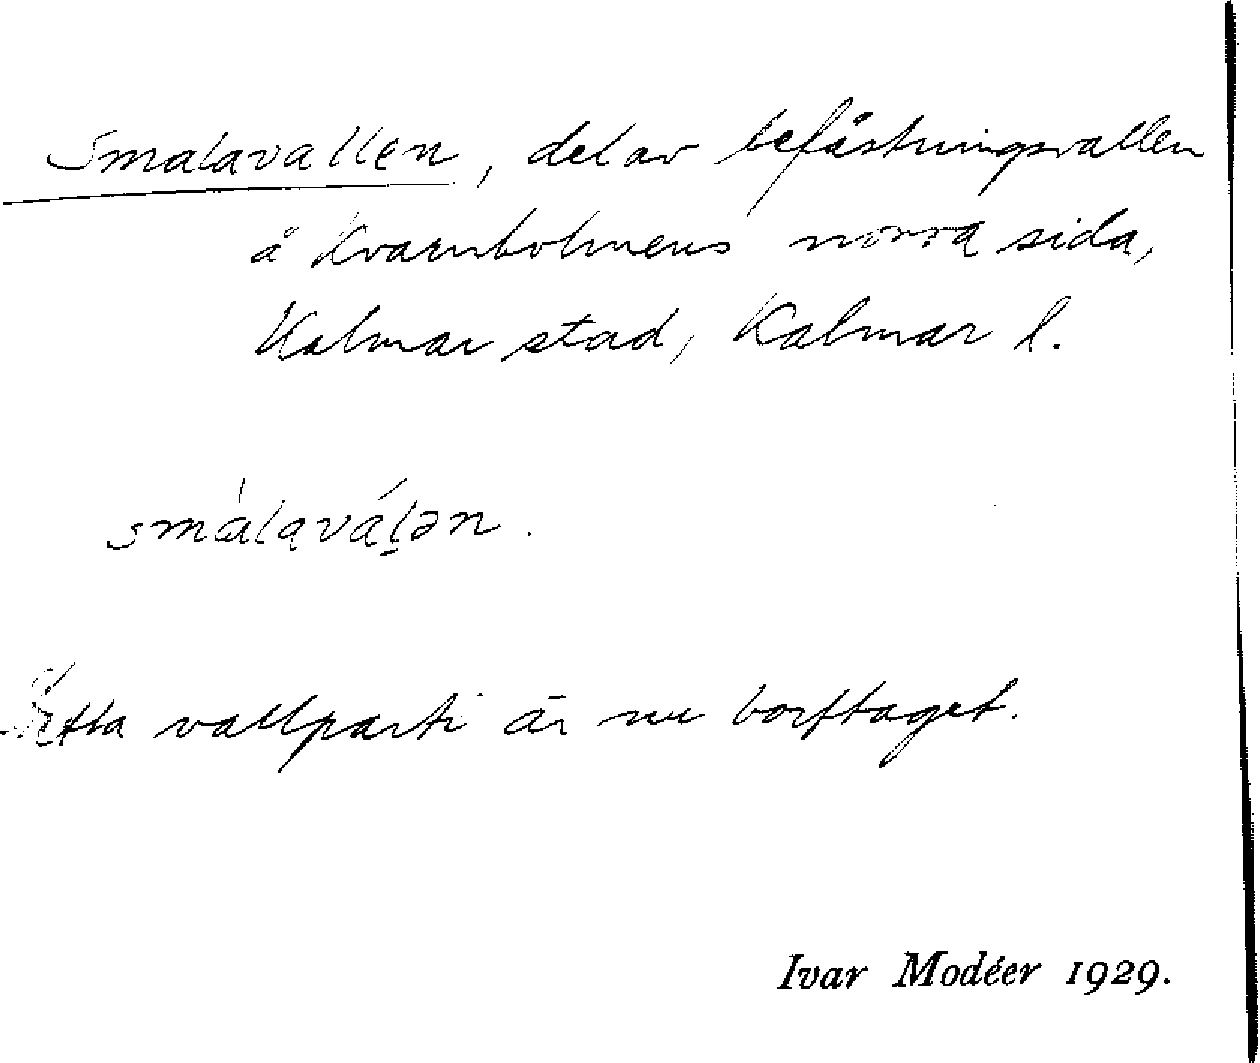 Smalavallen, del av befästningsvallen
å Kvarnholmens norra sida,
Kalmar stad, Kalmar l.
smàlavál̠ən.
Detta vallparti är nu borttaget.
Ivar Modéer 1929.